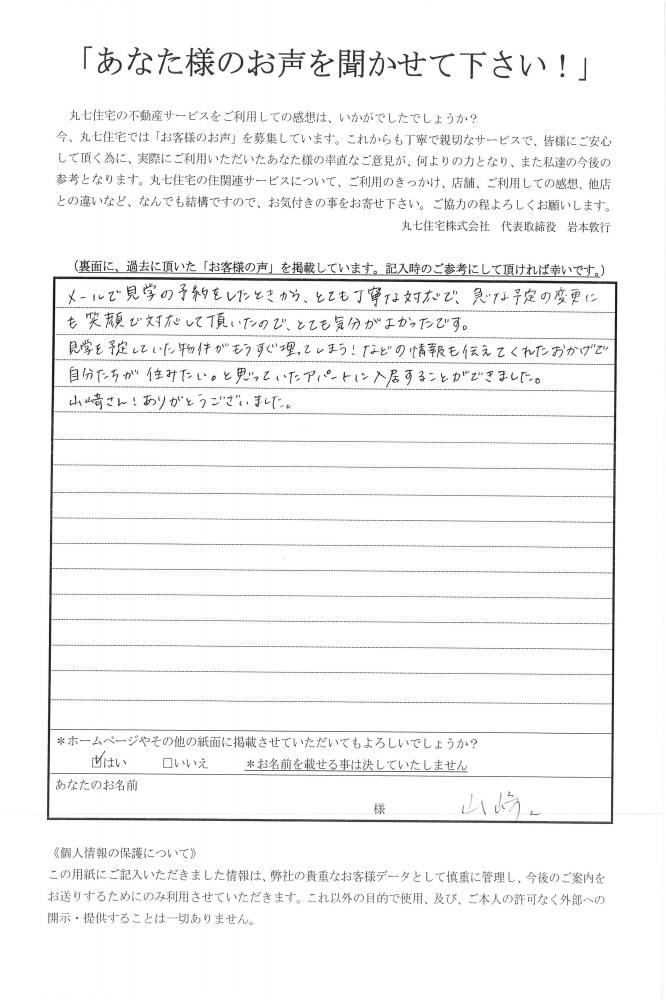 「あなた様のお声を聞かせて下さい！」
丸七住宅の不動産サービスをご利用しての感想は、いかがでしたでしょうか？
今、丸七住宅では「お客様のお声」を募集しています。これからも丁寧で親切なサービスで、皆様にご安心
して頂く為に、実際にご利用いただいたあなた様の率直なご意見が、何よりの力となり、また私達の今後の
参考となります。丸七住宅の住関連サービスについて、ご利用のきっかけ、店舗、ご利用しての感想、他店
との違いなど、なんでも結構ですので、お気付きの事をお寄せ下さい。ご協力の程よろしくお願いします。
丸七住宅株式会社　代表取締役　岩本敦行
（裏面に、過去に頂いた「お客様の声」を掲載しています。記入時のご参考にして頂ければ幸いです。）
メールで見学の予約をしたときから、とても丁寧な対応で、急な予定の変更に
も笑顔で対応して頂いたので、とても気分がよかったです。
見学を予定していた物件がもうすぐ埋ってしまう！などの情報も伝えてくれたおかげで
自分たちが住みたい。と思っていたアパートに入居することができました。
山崎さん！ありがとうございました。
＊ホームページやその他の紙面に掲載させていただいてもよろしいでしょうか？
☑はい　□いいえ　＊お名前を載せる事は決していたしません
あなたのお名前
様　山崎
《個人情報の保護について》
この用紙にご記入いただきました情報は、弊社の貴重なお客様データとして慎重に管理し、今後のご案内を
お送りするためにのみ利用させていただきます。これ以外の目的で使用、及び、ご本人の許可なく外部への
開示・提供することは一切ありません。